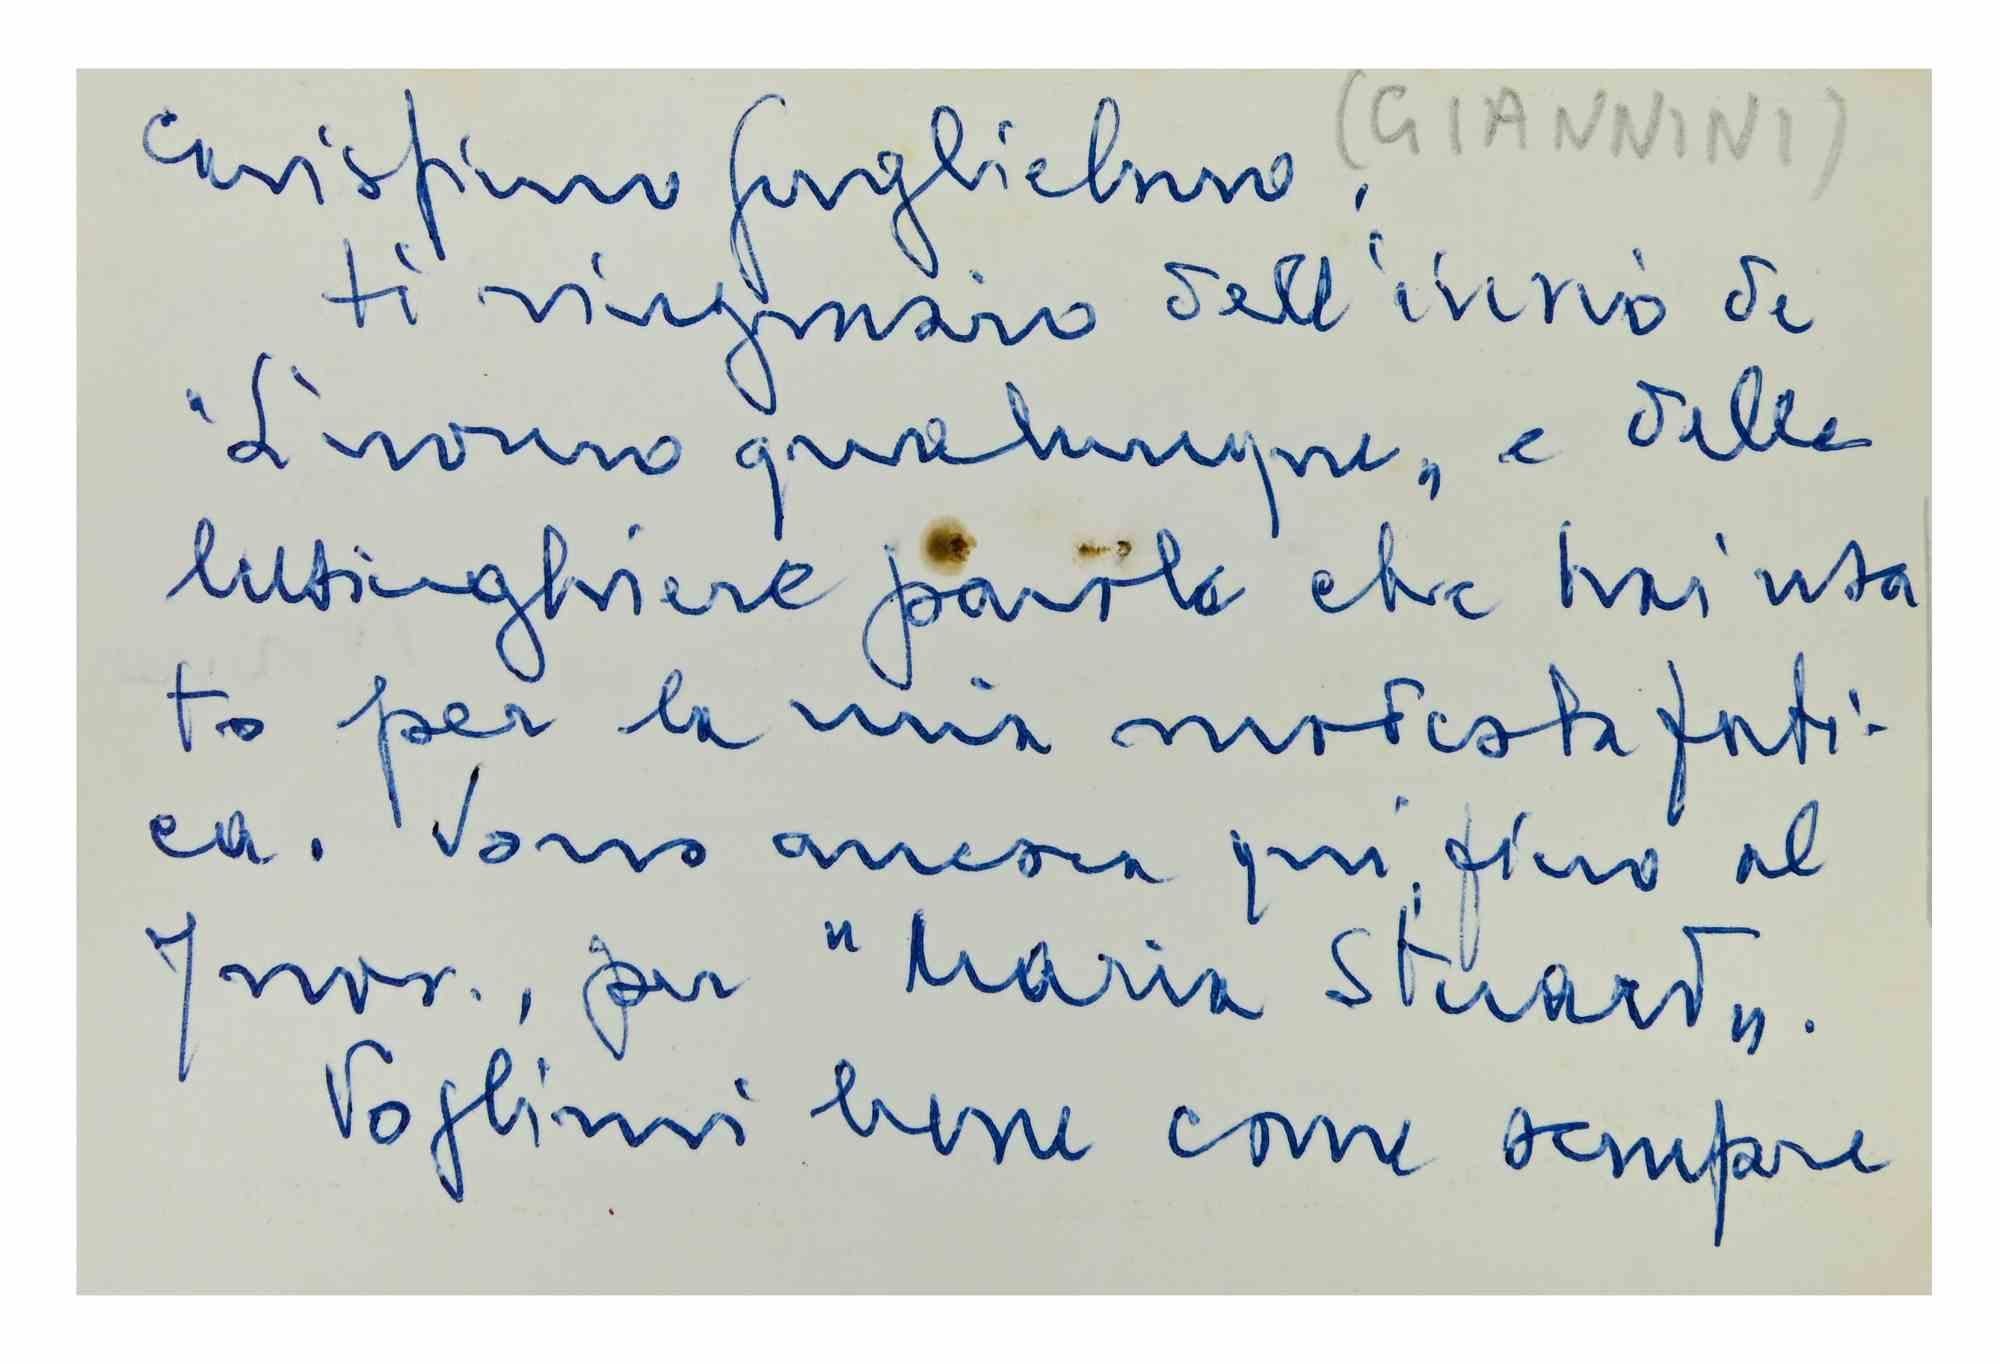 Carissimo Guglielmo, (GIANNINI)
ti ringrazio dell'invio de
"L'uomo qualunque„ e delle
lusinghiere parole che hai usa
to per la mia modesta fati-
ca. Sono ancora qui, fino al
7 nov., per "Maria Stuard„.
Voglimi bene come sempre